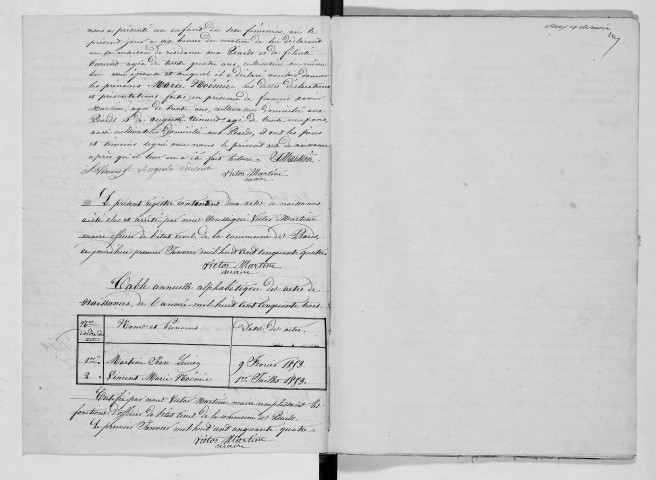 nous a présenté un enfant du sexe féminin, né le
présent jour à six heures du matin de lui déclarant
en sa maison de résidence aux Piards et de félicité
âgée de trente quatre ans, cultivatrice au même
lieu son épouse et auquel il a déclaré vouloir donner
les prénoms Marie Noémie. les dites déclarations
et présentations faites en présence de françois xavier
Martine, âgé de trente ans, cultivateur domicilié aux
Piards et de auguste vincent, âgé de trente neuf ans,
aussi cultivateur domicilié aux Piards, et ont les père
et témoins signé avec nous le présent acte de naissance
après qu'il leur en a été fait lecture.
Auguste Vincent
Victor Martine
maire
Le présent registre contenant deux actes de naissances
a été clos et arrêté par nous soussigné Victor Martine
maire officier de l'état civil de la commune de Piards,
ce jourd'hui premier Janvier mil huit cent cinquante quatre.
Victor Martine
maire
Table annuelle alphabétique des actes de
Naissances, de l'année mil huit cent cinquante trois.
Nos d'ordre des actes Noms et Prénoms Date des actes.
1er Martine Jean Louis 9 Février 1853
2 Vincent Marie Noémie 1er Juillet 1853.
Certifié par nous Victor Martine maire remplissant les
fonctions d'officier de l'état civil de la commune des Piards.
Le premier Janvier mil huit cent cinquante quatre.
Victor Martine
maire
deux et dernier